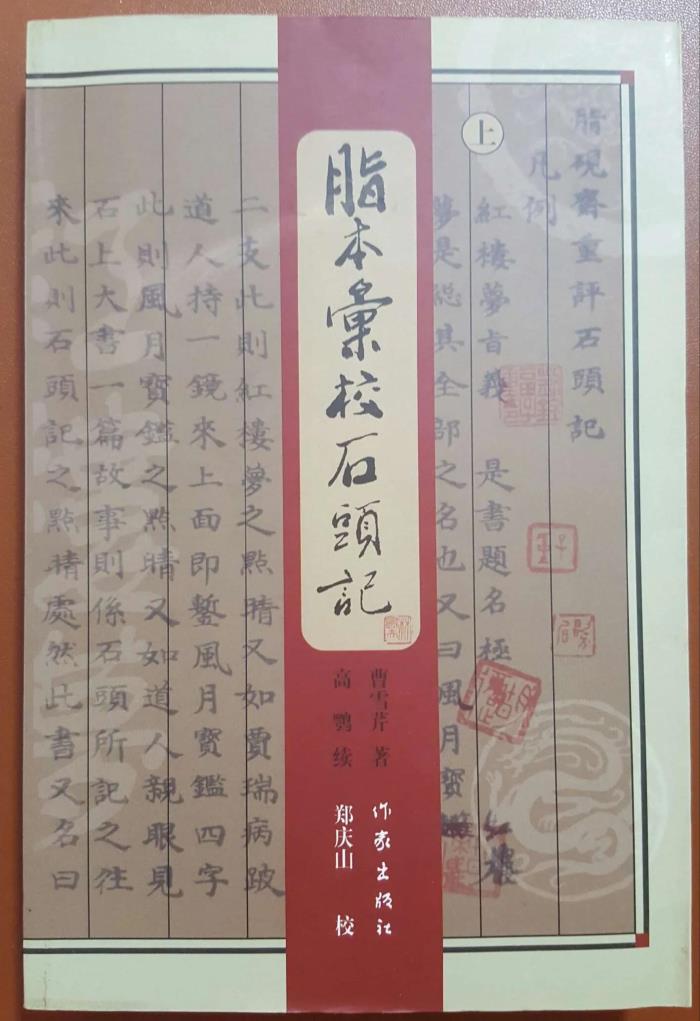 脂硯齋重評石頭記
凡例
紅樓夢旨義 是書題名極 紅樓
夢是總其全部之名也又曰風月寶
上
脂本彙校石頭記
曹雪芹 著
高鹗 续
作家出版社
郑庆山 校
二支此則紅樓夢之點睛又如賈瑞病跛
道人持一鏡來上面即鏨風月寶鑑四字
此則風月寶鑑之點睛又如道人親眼見
石上大書一篇故事則係石頭所記之往
來此則石頭記之點睛處然此書又名曰